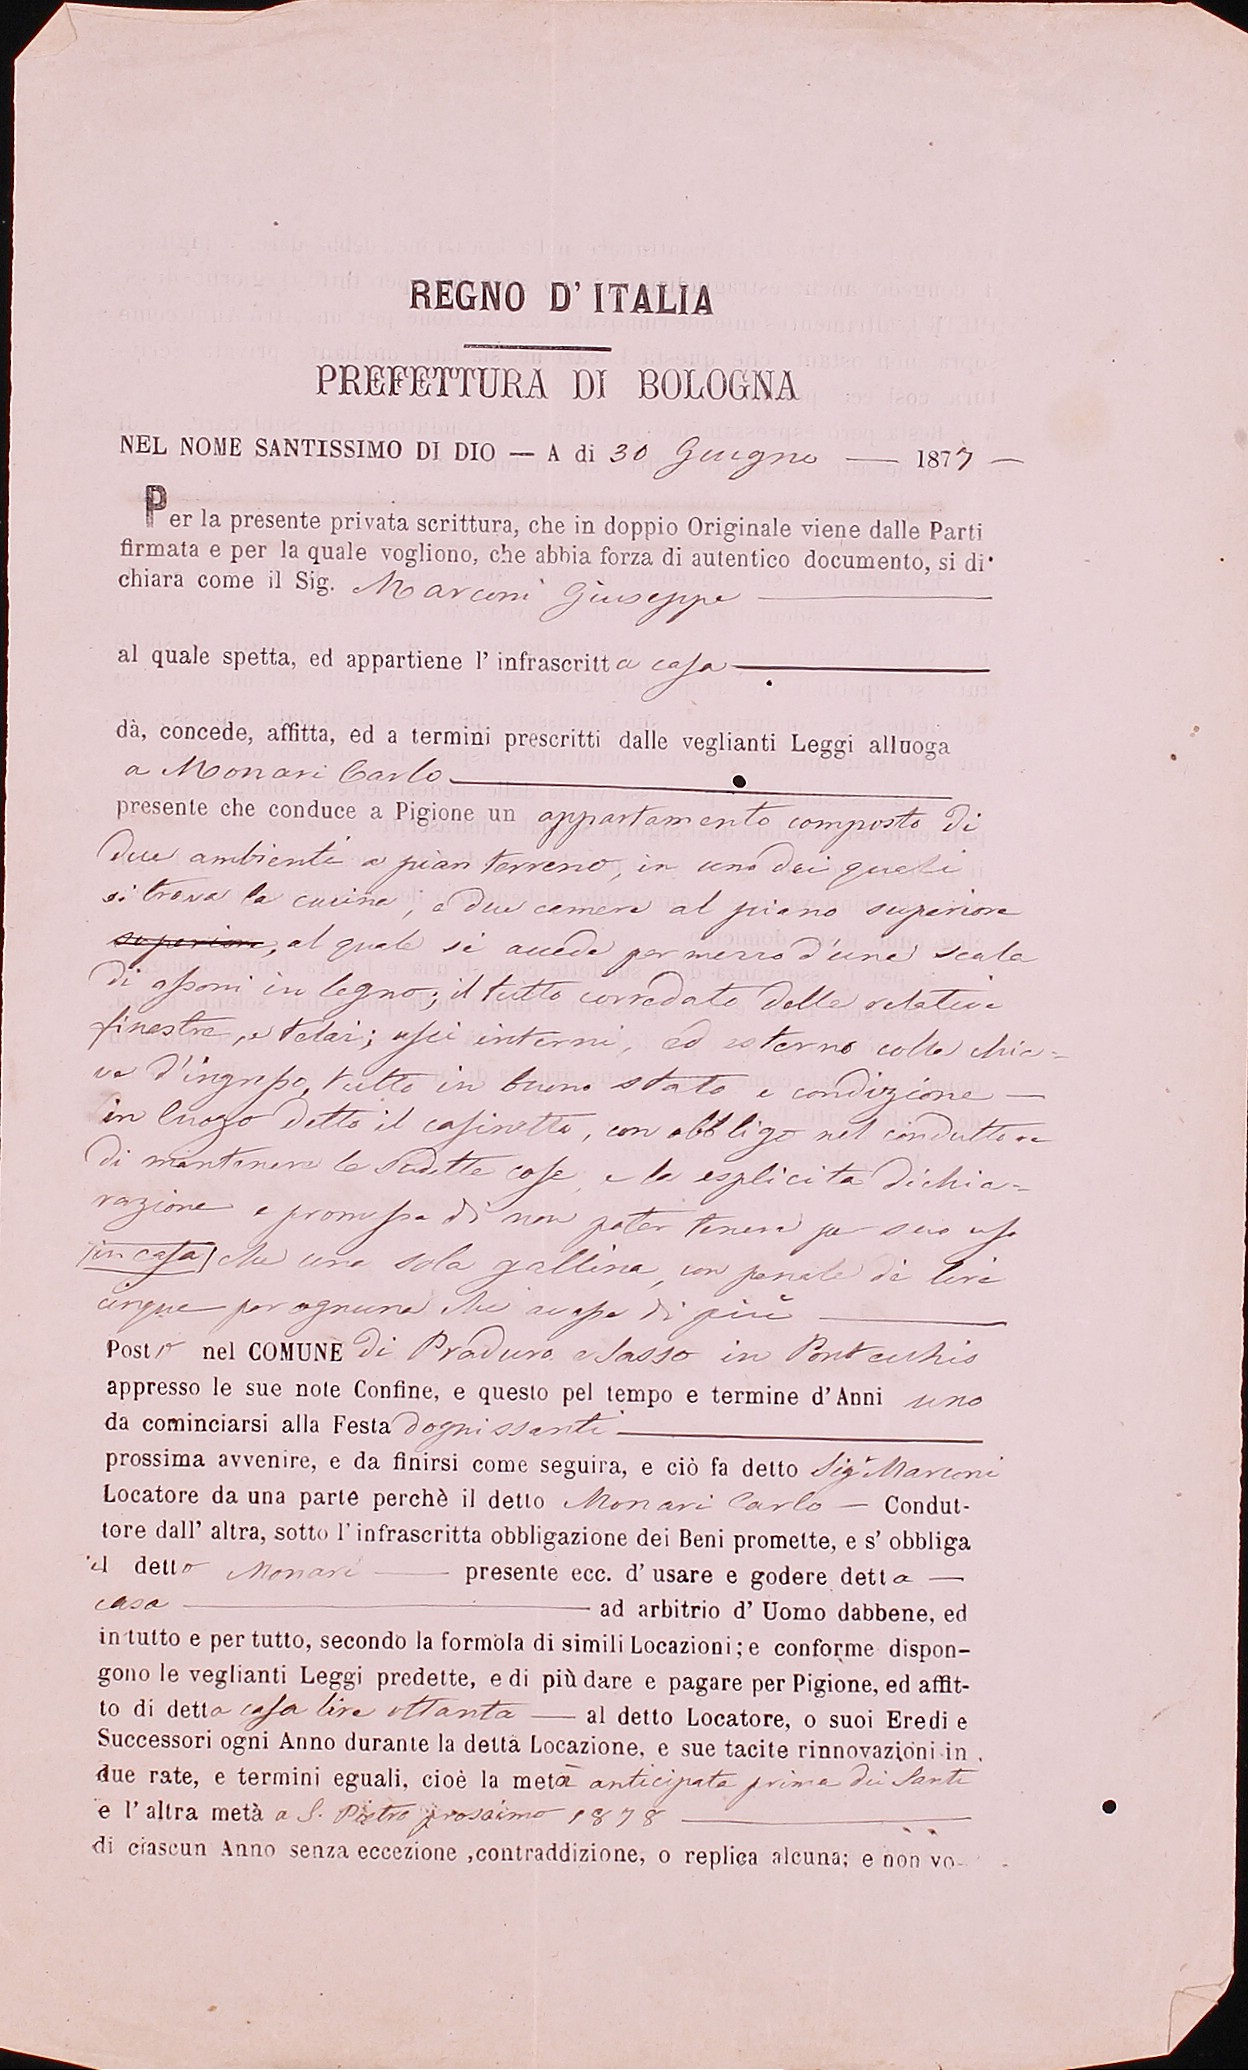 REGNO D' ITALIA
PREFETTURA DI BOLOGNA
NEL NOME SANTISSIMO DI DIO — A di 30 Giugno — 1877 —
Per la presente privata scrittura, che in doppio Originale viene dalle Parti
firmata e per la quale vogliono, che abbia forza di autentico documento, si di-
chiara come il Sig. Marconi Giuseppe
al quale spetta, ed appartiene l' infrascritta casa
dà, concede, affitta, ed a termini prescritti dalle veglianti Leggi alluoga
a Monari Carlo
presente che conduce a Pigione un appartamento composto di
due ambienti a pian terreno, in uno dei quali
si trova la cucina, e due camere al piano superiore
superiore, al quale si accede per mezzo d'una scala
di assoni in legno; il tutto corredato delle relative
finestre, e telai; usci interni, ed esterno colla chia=
ve d'ingresso, tutto in buono stato e condizione —
in luogo detto il casinetto, con obbligo nel conduttore
di mantenere le sudette cose, e la esplicita dichia=
razione e promessa di non poter tenere per suo uso
(in casa) che una sola gallina, con penale di lire
cinque per ognuna che avesse di più
Posto nel COMUNE di Praduro e Sasso in Pontecchio
appresso le sue note Confine, e questo pel tempo e termine d' Anni uno
da cominciarsi alla Festa dognissanti
prossima avvenire, e da finirsi come seguira, e ciò fa detto Sigr Marconi
Locatore da una parte perchè il detto Monari Carlo — Condut-
tore dall' altra, sotto l' infrascritta obbligazione dei Beni promette, e s' obbliga
il detto Monari — presente ecc. d' usare e godere detta —
casa — ad arbitrio d' Uomo dabbene, ed
in tutto e per tutto, secondo la formola di simili Locazioni; e conforme dispon-
gono le veglianti Leggi predette, e di più dare e pagare per Pigione, ed affit-
to di detta casa lire ottanta — al detto Locatore, o suoi Eredi e
Successori ogni Anno durante la detta Locazione, e sue tacite rinnovazioni in
due rate, e termini eguali, cioè la metà anticipata prima dei Santi
e l' altra metà a S. Pietro prossimo 1878
di ciascun Anno senza eccezione ,contraddizione, o replica alcuna; e non vo-